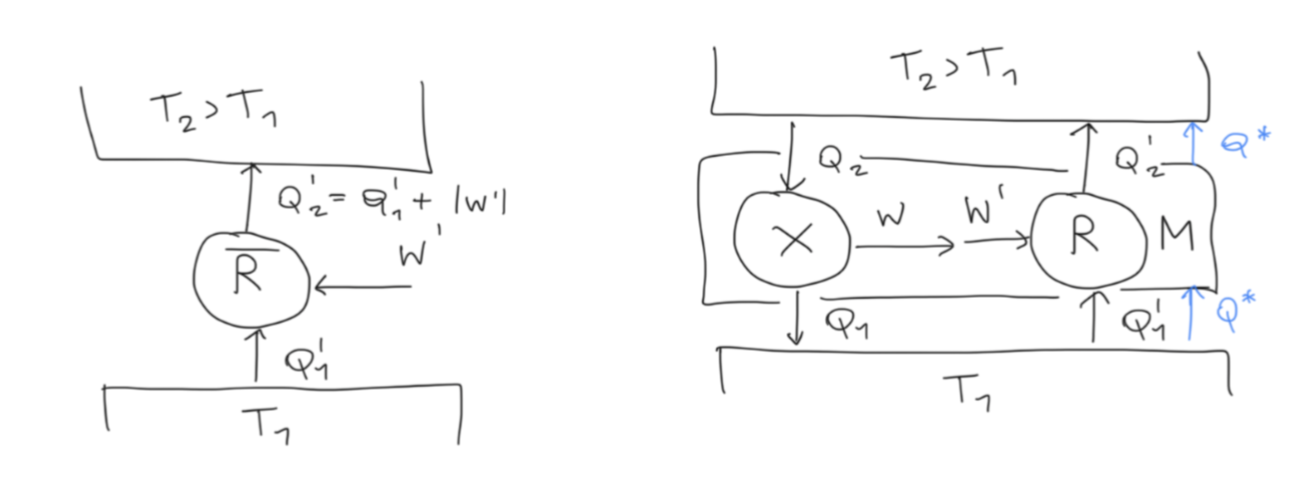 T₂ > T₁
Q₂' = Q₁' + |W'|
W'
R̅
Q₁'
T₁
T₂ > T₁
Q*
Q₂
Q₂'
W
W'
X
R
M
Q₁
Q₁'
Q*
T₁